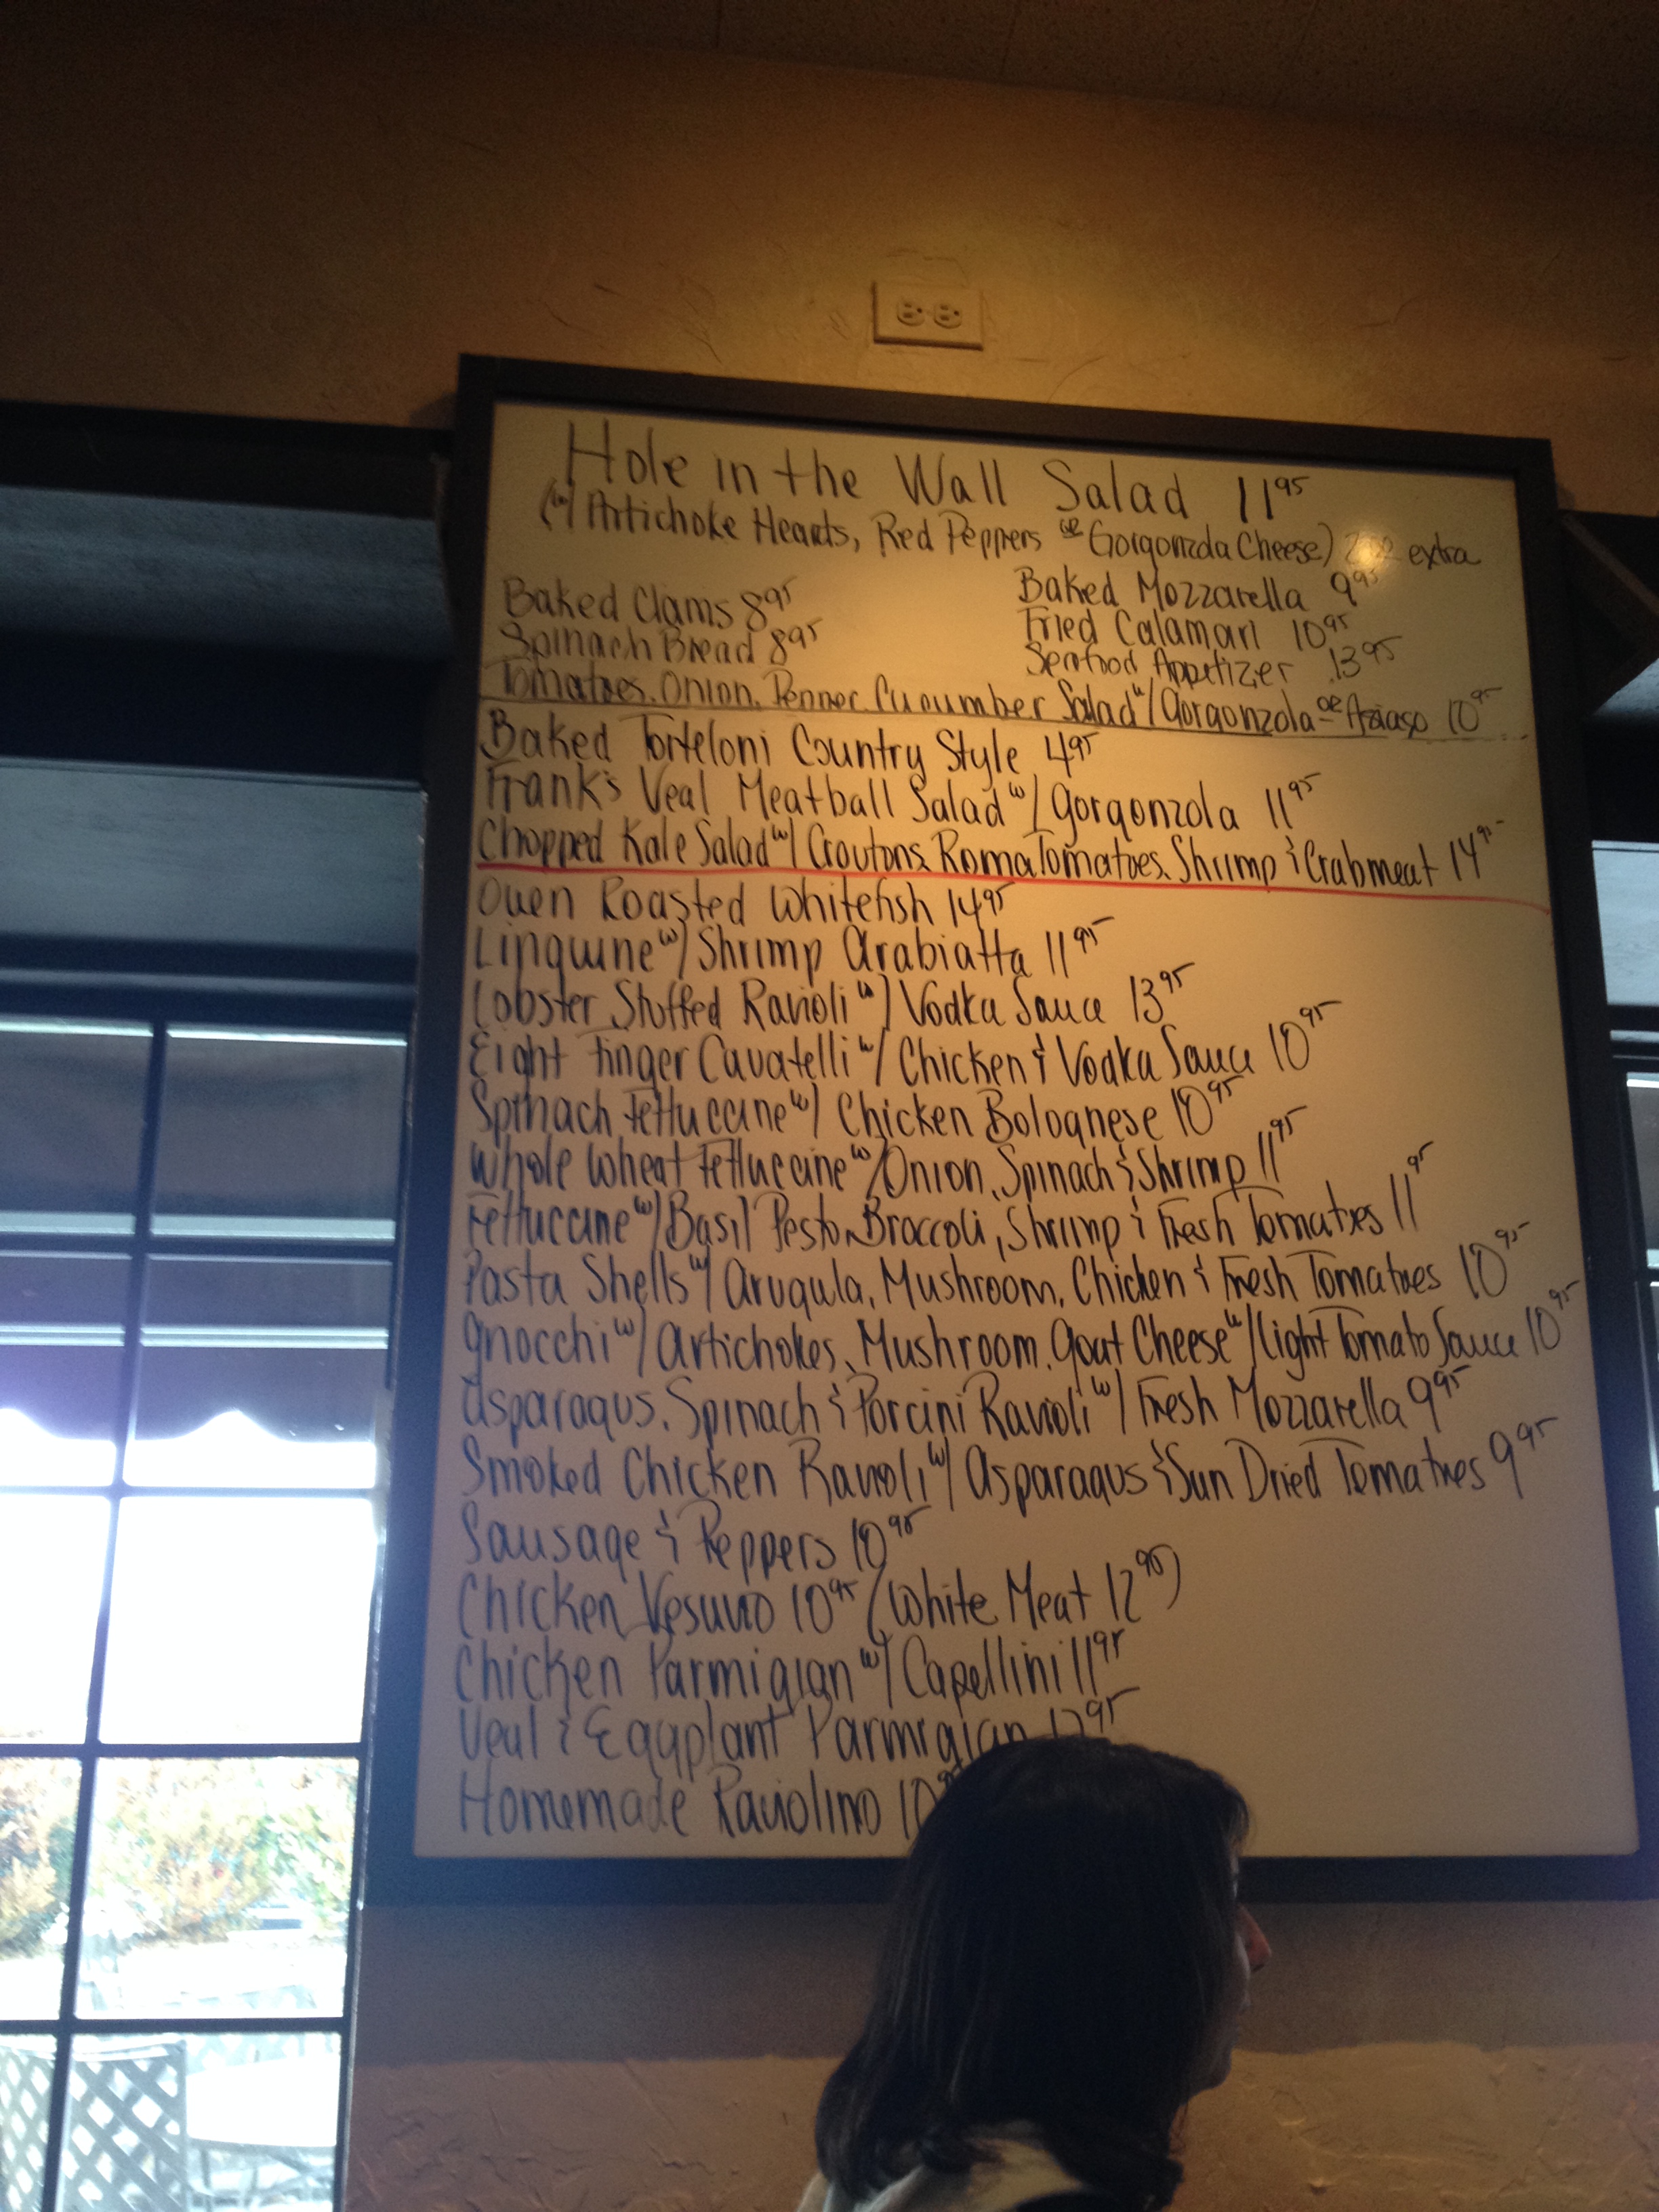 Hole in the Wall Salad 11 95
(w/ Artichoke Hearts, Red Peppers or Gorgonzola Cheese) extra
Baked Clams 8 95
Spinach Bread 8 95
Baked Mozzarella 9 95
Fried Calamari 10 95
Seafood Appetizer 13 95
Tomatoes, Onion, Pepper, Cucumber Salad w/ Gorgonzola or Asiago 10 95
Baked Torteloni Country Style 4 95
Frank's Veal Meatball Salad w/ Gorgonzola 11 95
Chopped Kale Salad w/ Croutons, Roma Tomatoes, Shrimp & Crabmeat 14 95
Oven Roasted Whitefish 14 95
Linguine w/ Shrimp Arabiatta 11 95
Lobster Stuffed Ravioli w/ Vodka Sauce 13 95
Eight Finger Cavatelli w/ Chicken & Vodka Sauce 10 95
Spinach Fettuccine w/ Chicken Bolognese 10 95
Whole Wheat Fettuccine w/ Onion, Spinach & Shrimp 11 95
Fettuccine w/ Basil Pesto, Broccoli, Shrimp & Fresh Tomatoes 11 95
Pasta Shells w/ Arugula, Mushroom, Chicken & Fresh Tomatoes 10 95
Gnocchi w/ Artichokes, Mushroom, Goat Cheese w/ Light Tomato Sauce 10 95
Asparagus, Spinach & Porcini Ravioli w/ Fresh Mozzarella 9 95
Smoked Chicken Ravioli w/ Asparagus & Sun Dried Tomatoes 9 95
Sausage & Peppers 10 95
Chicken Vesuvio 10 95 (White Meat 12 95)
Chicken Parmigian w/ Capellini 11 95
Veal & Eggplant Parmigian 95
Homemade Raviolino 10